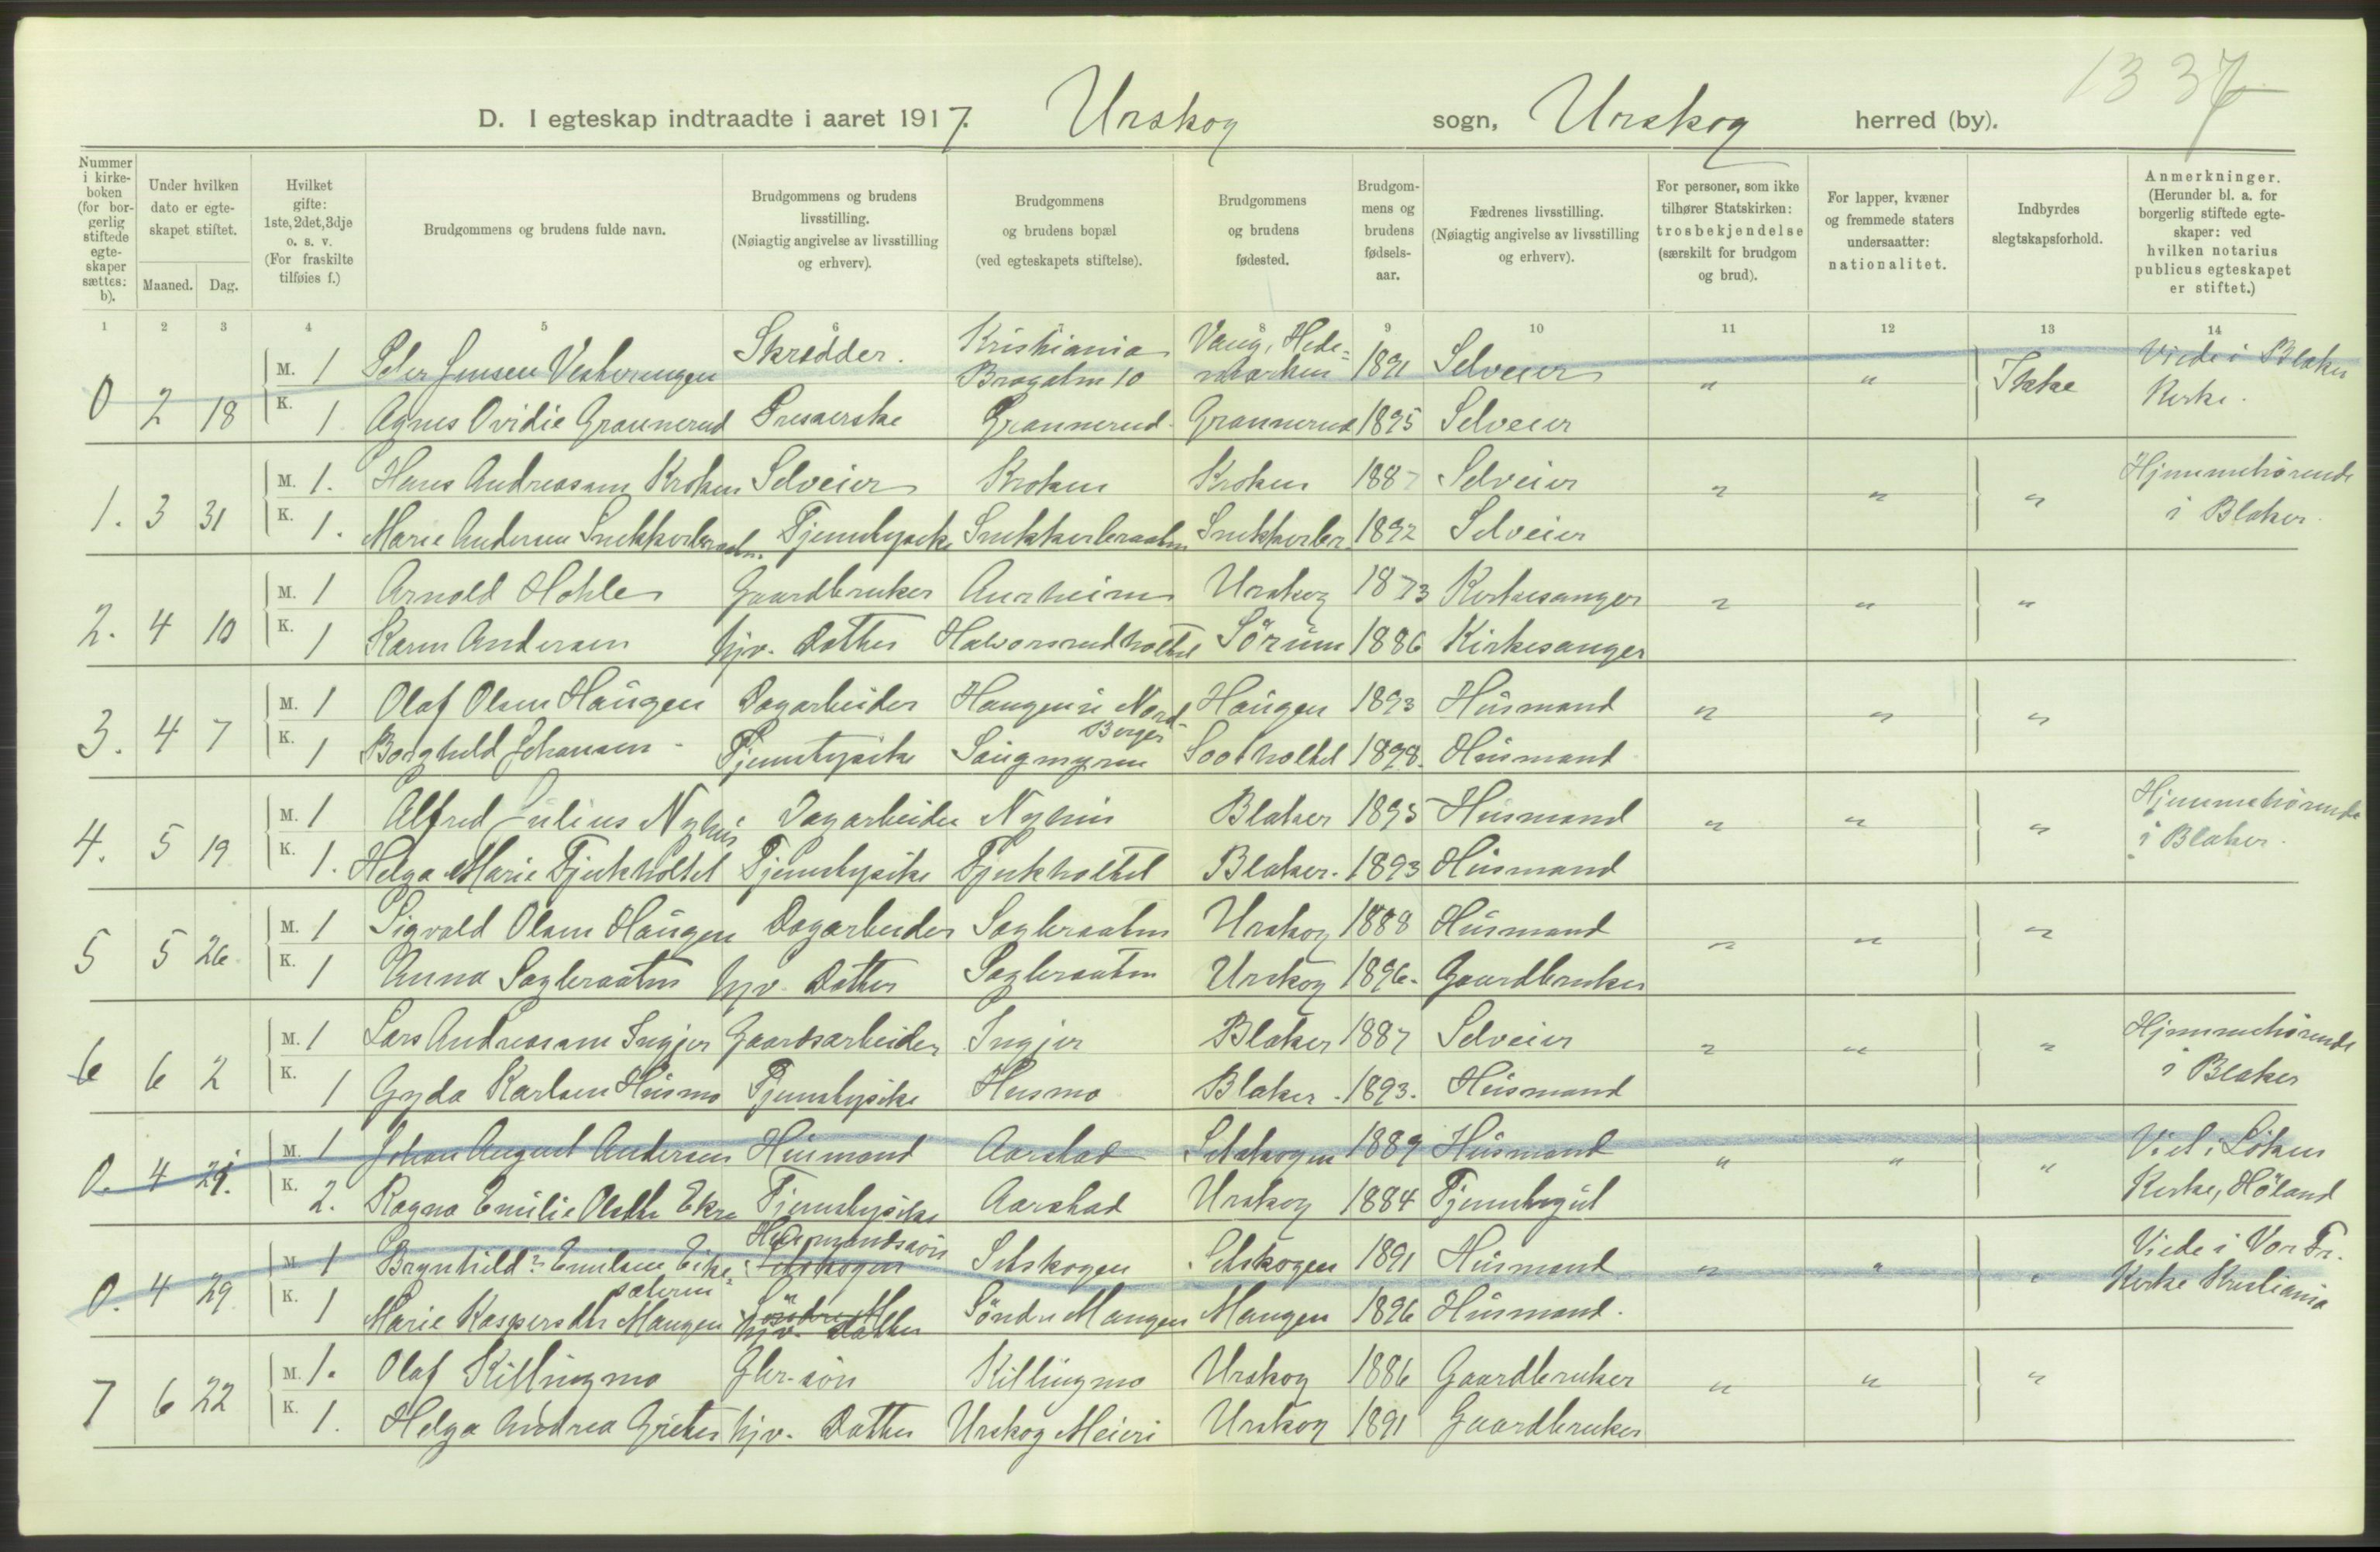 13 37
D. I egteskap indtraadte i aaret 1917. Urskog sogn, Urskog herred (by).
Nummer i kirkeboken (for borgerlig stiftede egteskaper sættes: b).
Under hvilken dato er egteskapet stiftet.
Maaned. Dag.
Hvilket gifte: 1ste, 2det, 3dje o. s. v. (For fraskilte tilføies f.)
Brudgommens og brudens fulde navn.
Brudgommens og brudens livsstilling. (Nøiagtig angivelse av livsstilling og erhverv).
Brudgommens og brudens bopæl (ved egteskapets stiftelse).
Brudgommens og brudens fødested.
Brudgommens og brudens fødselsaar.
Fædrenes livsstilling. (Nøiagtig angivelse av livsstilling og erhverv).
For personer, som ikke tilhører Statskirken: trosbekjendelse (særskilt for brudgom og brud).
For lapper, kvæner og fremmede staters undersaatter: nationalitet.
Indbyrdes slegtskapsforhold.
Anmerkninger. (Herunder bl. a. for borgerlig stiftede egteskaper: ved hvilken notarius publicus egteskapet er stiftet.)
1 2 3 4 5 6 7 8 9 10 11 12 13 14
0 2 18 M. 1 Peter Jensen Skrædder. Kristiania Brogatn 10 Vang, Hedemarken 1891 Selveier " " Ikke Viede i Blaker Kirke.
K. 1 Agnes Ovidie Grannerud Grannerud Grannerud 1895 Selveier
1. 3 31 M. 1. Hans Andreassen Kroken Selveier Kroken Kroken 1887 Selveier " " " Hjemmehørende i Blaker
K. 1. Marie Andersen Snekkerbraaten Tjenestepike Snekkerbraaten Snekkerbr. 1892 Selveier
2. 4 10 M. 1 Arnold Hohle Gaardbruker Aurheim Urskog 1873 Kirkesanger " " "
K. 1 Karen Andersen hjv. Datter Halvorsrudholtet Sörum 1886 Kirkesanger
3. 4 7 M. 1 Olaf Olsen Haugen Dagarbeider Haugen i Nord-Berger Haugen 1893 Husmand " " "
K. 1 Borghild Johansen Tjenestepike Saugmyren Sootholtet 1898. Husmand
4. 5 19 M. 1 Alfred Julius Nyhus Dagarbeider Nyhus Blaker 1895 Husmand " " " Hjemmehørende i Blaker.
K. 1. Helga Marie Tjukholtet Tjenestepike Tjukholtet Blaker. 1893 Husmand
5 5 26 M. 1 Sigvald Olsen Haugen Dagarbeider Sagbraaten Urskog 1888 Husmand " " "
K. 1 Anna Sagbraaten hjv. Datter Sagbraaten Urskog 1896. Gaardbruker
6 6 2 M. 1 Lars Andreassen Ingjer Gaardsarbeider Ingjer Blaker 1887 Selveier " " " Hjemmehørende i Blaker
K. 1 Gyda Karlsen Husmo Tjenestepike Husmo Blaker. 1893. Husmand
0. 4 29. M. 1 Johan August Andersen Husmand Aarstad Setskogen 1889 Husmand " " " Viet i Löken Kirke, Höland
K. 2. Ragna Emilie Olsdtr Ekre Tjenestepike Aarstad Urskog 1884
0. 4 29 M. 1 Brynhild Emilsen Husmandssön Setskogen Setskogen Setskogen 1891 Husmand " " " Viede i Vor Fr. Kirke Kristiania
K. 1 Marie Kaspersdtr Mangen Söndre M hjv. Datter Söndre Mangen Mangen 1896 Husmand.
7 6 22 M. 1. Olaf Killingmo Gbr. sön Killingmo Urskog 1886 Gaardbruker " " "
K. 1. Helga Andrea hjv. Datter Urskog Meieri Urskog 1891 Gaardbruker